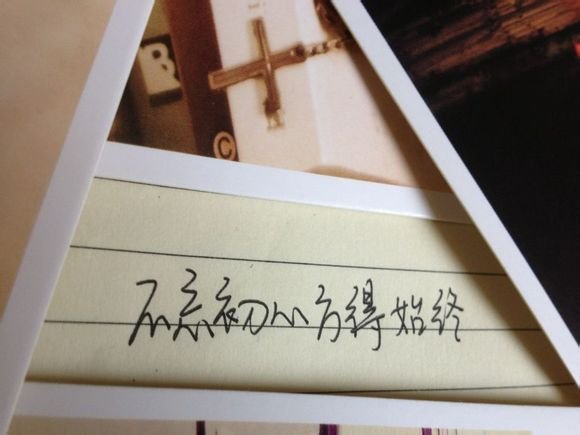 R
©
不忘初心方得始终